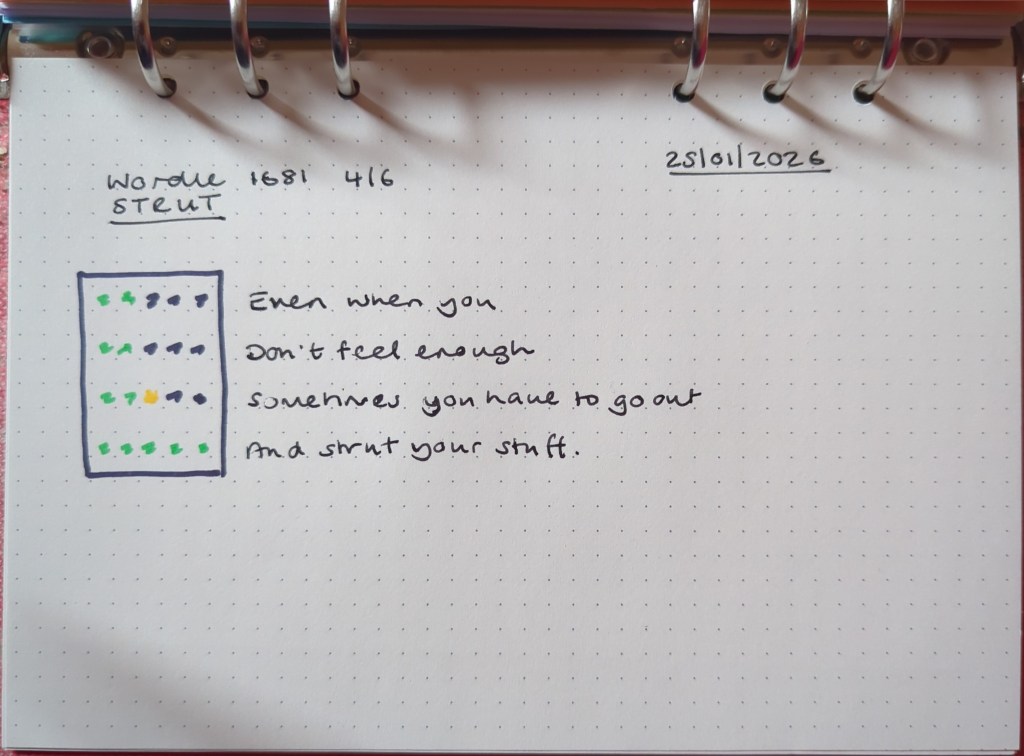 25/01/2026
Wordle 1681 4/6
STRUT
Even when you
Don't feel enough
Sometimes you have to go out
And strut your stuff.